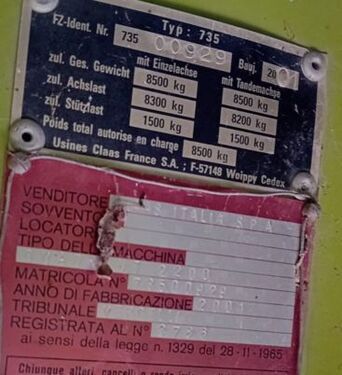 Typ: 735
FZ-Ident. Nr. 735 00929 Bauj. 2001
mit Einzelachse mit Tandemachse
zul. Ges. Gewicht 8500 kg 8500 kg
zul. Achslast 8300 kg 8200 kg
zul. Stützlast 1500 kg 1500 kg
Poids total autorise en charge 8500 kg
Usines Claas France S.A.; F-57148 Woippy Cedex
VENDITORE S ITALIA S.P.A.
SOVVENTO
LOCATOR
TIPO DELL MACCHINA
2200
MATRICOLA N° 73500929
ANNO DI FABBRICAZIONE 2001
TRIBUNALE
REGISTRATA AL N° 2723
ai sensi della legge n. 1329 del 28-11-1965
Chiunque alteri, cancelli o renda